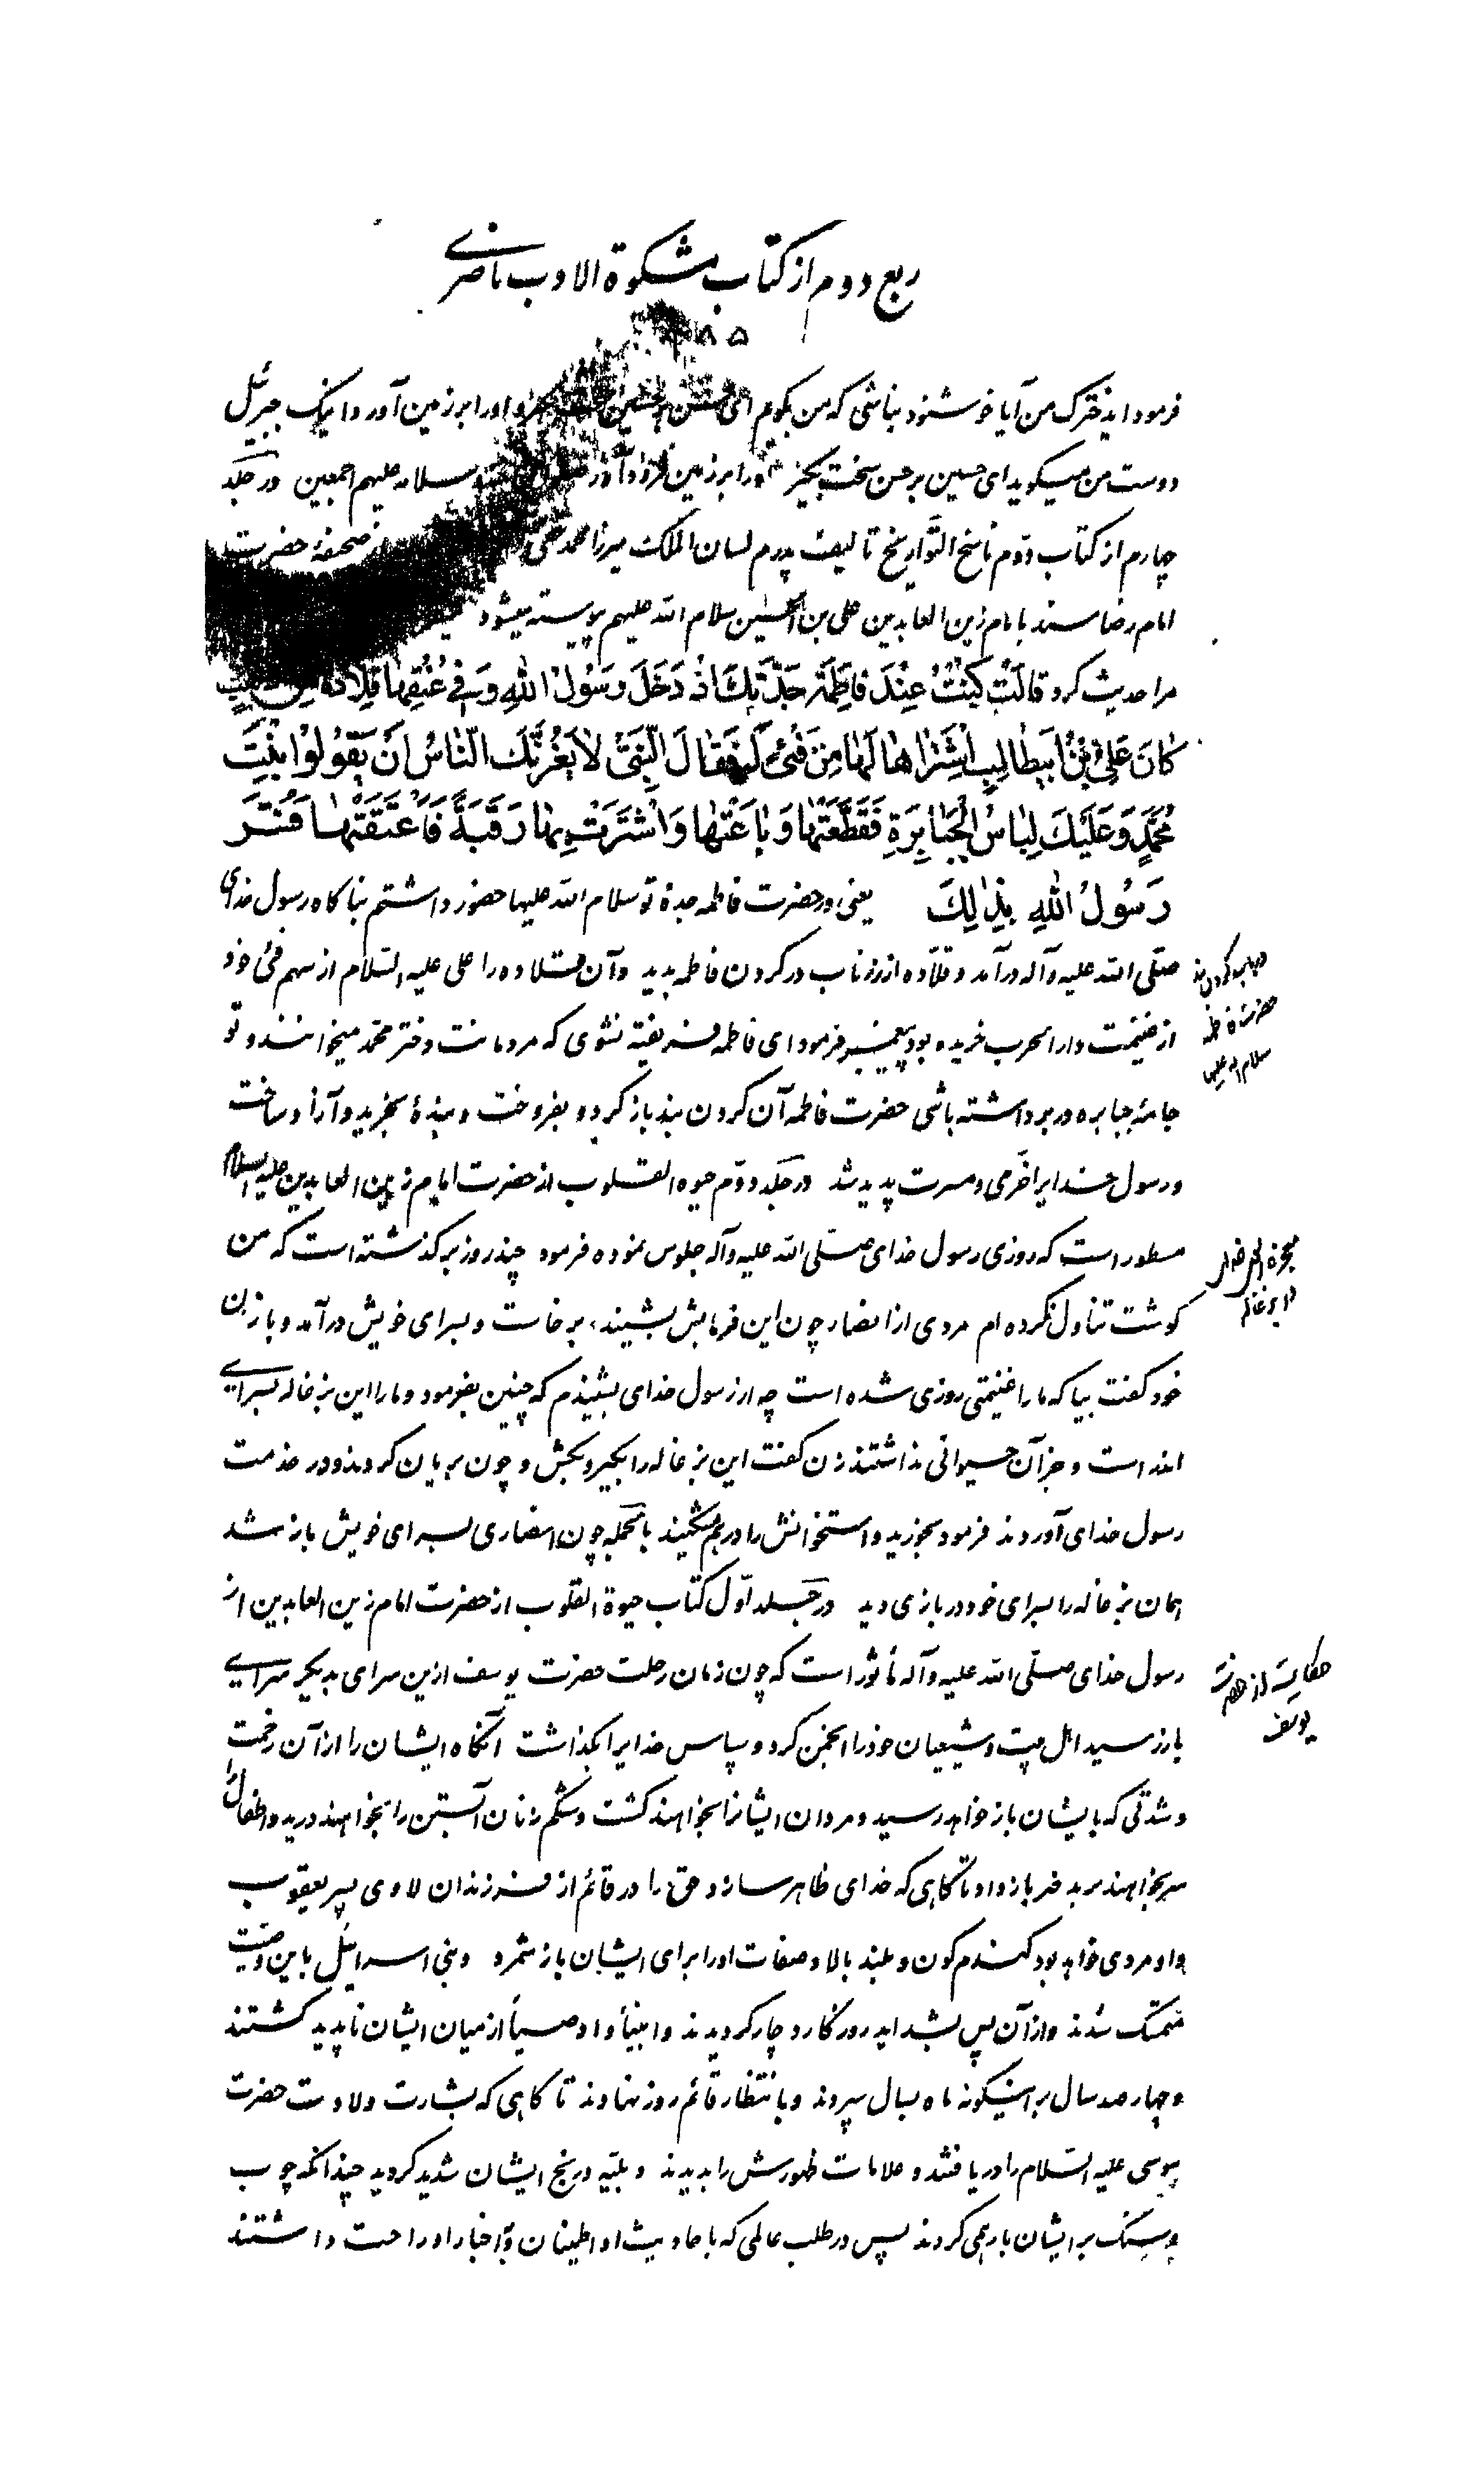 ربع دوم از کتاب مشکوة الادب ناصری
۵
فرمود ایدخترک من آیا خوشنود نباشی که من بگویم و او را بر زمین آور و اینک جبرئیل
دوست من میگوید ای حسین بر حسن سخت بگیر و او را بر زمین سلامه علیهم اجمعین در جلد
چهارم از کتاب دوّم ناسخ التّواریخ تالیف پدرم لسان الملک میرزا محمد تقی صحیفهٔ حضرت
امام رضا سند بامام زین العابدین علی بن الحسین سلام الله علیهم پیوسته میشود
مرا حدیث کرد قالَتْ کُنْتُ عِنْدَ فاطِمَةَ جَدَّتِكَ اِذْ دَخَلَ رَسُولُ اللهِ وَ فی عُنُقِها قِلادَة
کانَ عَلِیُّ بْنُ اَبیطالِبٍ اِشْتَراها لَها مِنْ فَیْئٍ لَهُ فَقالَ النَّبِیُّ لا یَغُرَّنَّكَ النّاسُ اَنْ یَقُولُوا بِنْتُ
مُحَمَّدٍ وَ عَلَیْكَ لِباسُ الْجَبابِرَةِ فَقَطَعَتْها وَ باعَتْها وَ اشْتَرَتْ بِها رَقَبَةً فَاَعْتَقَتْها فَسُرَّ
رَسُولُ اللهِ بِذٰلِكَ یعنی در حضرت فاطمه جدهٔ تو سلام الله علیها حضور داشتم بناگاه رسول خدای
صلّی الله علیه و آله درآمد و قلّاده از زر ناب در گردن فاطمه بدید و آن قلاده را علی علیه السّلام از سهم فیئ خود
از غنیمت دار الحرب خریده بود پیغمبر فرمود ای فاطمه فریفته نشوی که مردمانت دختر محمّد میخوانند و تو
جامهٔ جبابره در بر داشته باشی حضرت فاطمه آن گردن بند باز کرد و بفروخت و بندهٔ بخرید و آزاد ساخت
و رسول خدایرا خرّمی و مسرت پدید شد در جلد دوّم حیوة القلوب از حضرت امام زین العابدین علیه السلام
مسطور است که روزی رسول خدای صلّی الله علیه و آله جلوس نموده فرمود چند روز بر گذشته است که من
گوشت تناول نکرده ام مردی از انصار چون این فرمایش بشنید، برخاست و بسرای خویش درآمد و با زن
خود گفت بیا که ما را غنیمتی روزی شده است چه از رسول خدای بشنیدم که چنین بفرمود و ما را این بزغاله بسرای
اندر است و جز آن حیوانی نداشتند زن گفت این بزغاله را بگیر و بکش و چون بریان کردند و در خدمت
رسول خدای آوردند فرمود بخورید و استخوانش را درهم مشکنید بالجمله چون انصاری بسرای خویش باز شد
همان بزغاله را بسرای خود در بازی دید در جلد اوّل کتاب حیوة القلوب از حضرت امام زین العابدین از
رسول خدای صلّی الله علیه و آله مأثور است که چون زمان رحلت حضرت یوسف از این سرای بدیگر سرای
باز رسید اهل بیت و شیعیان خود را انجمن کرد و سپاس خدایرا بگذاشت آنگاه ایشان را از آن زحمت
و شدّتی که بایشان باز خواهد رسید و مردان ایشانرا بخواهند کشت و شکم زنان آبستن را بخواهند درید و اطفال را
سر بخواهند برید خبر باز داد تا گاهی که خدای ظاهر سازد حق را در قائم از فرزندان لاوی پسر یعقوب
و او مردی خواهد بود گندم گون و بلند بالا و صفات او را برای ایشان باز شمرد و بنی اسرائیل باین وصیّت
متمسّک شدند و از آن پس بشداید روزگار دچار گردیدند و انبیأ و اوصیأ از میان ایشان ناپدید گشتند
و چهارصد سال بر اینگونه ماه بسال سپردند و بانتظار قائم روز نهادند تا گاهی که بشارت ولادت حضرت
موسی علیه السّلام را دریافتند و علامات ظهورش را بدیدند و بلیّه و رنج ایشان شدید گردید چندانکه چوب
و سنگ بر ایشان بار همی کردند پس در طلب عالمی که باحادیث او اطمینان و باخبار او راحت داشتند
حضرت فاطمه
سلام الله علیها
حکایت از حضرت
یوسف